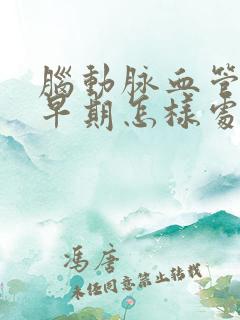 腦動脉血管
早期怎樣處
馮唐
未经同意禁止转载